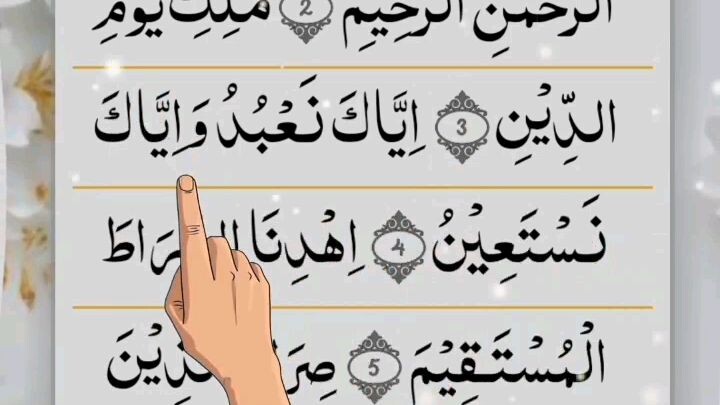 الرَّحْمٰنِ الرَّحِيْمِ 2 مٰلِكِ يَوْمِ
الدِّيْنِ 3 اِيَّاكَ نَعْبُدُ وَاِيَّاكَ
نَسْتَعِيْنُ 4 اِهْدِنَا
الْمُسْتَقِيْمَ 5